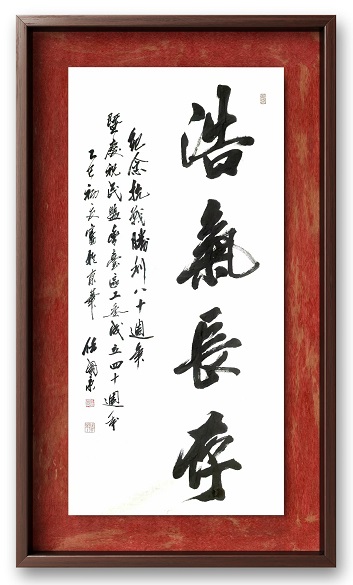 浩氣長存
紀念抗戰勝利八十週年
暨慶祝民盟奉臺區工委成立四十週年
乙巳初夏寫於京華